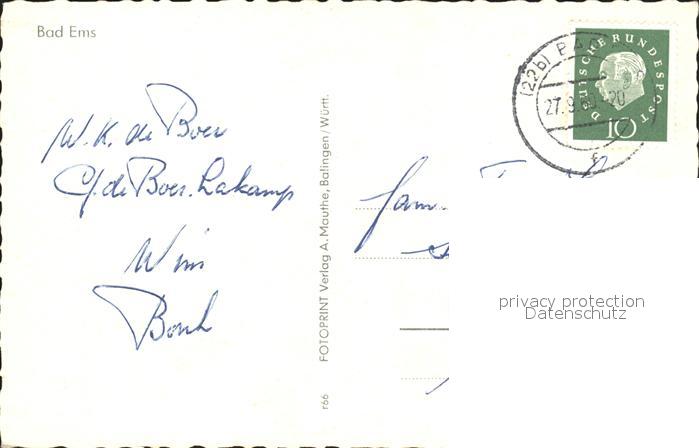 Bad Ems
W. K. de Boer
C. de Boer-Lakamp
Wim
Bouk
FOTOPRINT Verlag A. Mauthe, Balingen / Württ.
r66
DEUTSCHE BUNDESPOST
10
(22b) BAD
27.9.60 -20
Fam.
privacy protection
Datenschutz